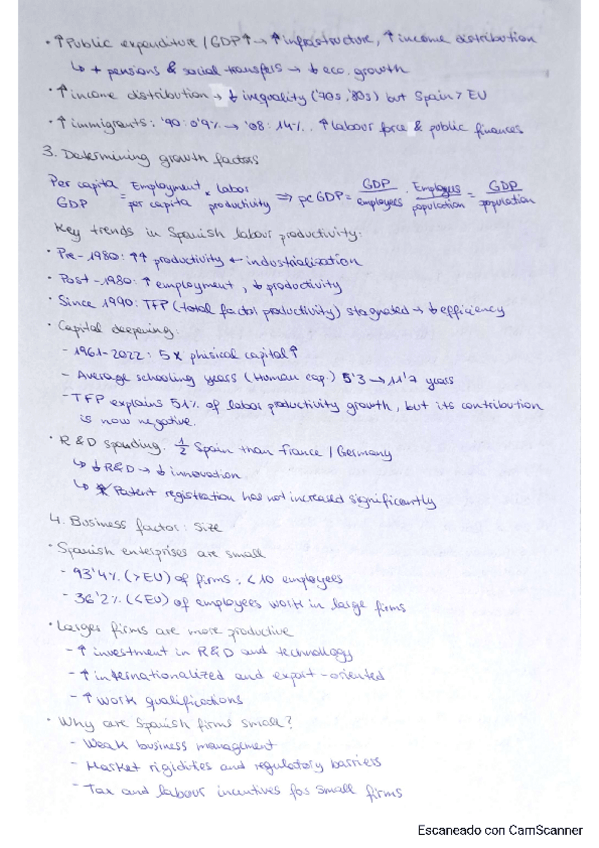 · ↑Public expenditure / GDP↑ → ↑ infrastructure, ↑ income distribution
↳ + pensions & social transfers → ↓ eco. growth
· ↑ income distribution → ↓ inequality ('70s, '80s) but Spain > EU
· ↑ immigrants: '90: 0'9% → '08: 14%. ↑ labour force & public finances
3. Determining growth factors
Per capita GDP = Employment per capita × Labor productivity ⇒ pc GDP = GDP/employees · Employees/population = GDP/population
Key trends in Spanish labour productivity:
· Pre-1980: ↑↑ productivity ← industrialization
· Post-1980: ↑ employment, ↓ productivity
· Since 1990: TFP (total factor productivity) stagnated → ↓ efficiency
· Capital deepening:
- 1961-2022: 5 x phisical capital ↑
- Average schooling years (Human cap.) 5'3 → 11'7 years
- TFP explains 51% of labor productivity growth, but its contribution
is now negative.
· R&D spending. 1/2 Spain than France / Germany
↳ ↓ R&D → ↓ innovation
↳ Patent registration has not increased significantly
4. Business factor: Size
· Spanish enterprises are small
- 93'4% (>EU) of firms: <10 employees
- 36'2% (<EU) of employees work in large firms
· Larger firms are more productive
- ↑ investment in R&D and technology
- ↑ internationalized and export-oriented
- ↑ work qualifications
· Why are Spanish firms small?
- Weak business management
- Market rigidities and regulatory barriers
- Tax and labour incentives for small firms
Escaneado con CamScanner